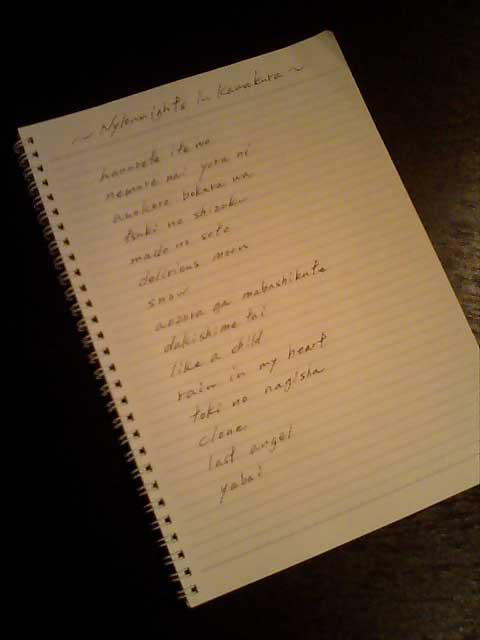 ~ Nylonnights in Kamakura ~
hanarete ite mo
nemure nai yoru ni
asokara bokura wa
tsuki no shizuku
mado no soto
delirious moon
snow
aozora ga mabushikute
dakishime tai
like a child
rain in my heart
toki no nagisa
clone
last angel
yabai